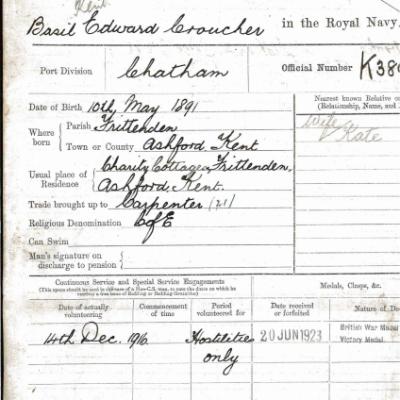 Kent
Basil Edward Croucher in the Royal Navy.
Port Division Chatham Official Number K380
Date of Birth 10th May 1891
Where born Parish Frittenden
Town or County Ashford Kent
Usual place of Residence Charity Cottages, Frittenden,
Ashford Kent.
Trade brought up to Carpenter (21)
Religious Denomination C of E
Can Swim
Man's signature on discharge to pension
Nearest known Relative or
(Relationship, Name, and
Wife
Kate
Continuous Service and Special Service Engagements
Medals, Clasps, &c.
Date of actually volunteering Commencement of time Period volunteered for Date received or forfeited Nature of De
14th Dec. 1916 Hostilities only 20 JUN 1923 British War Medal
Victory Medal